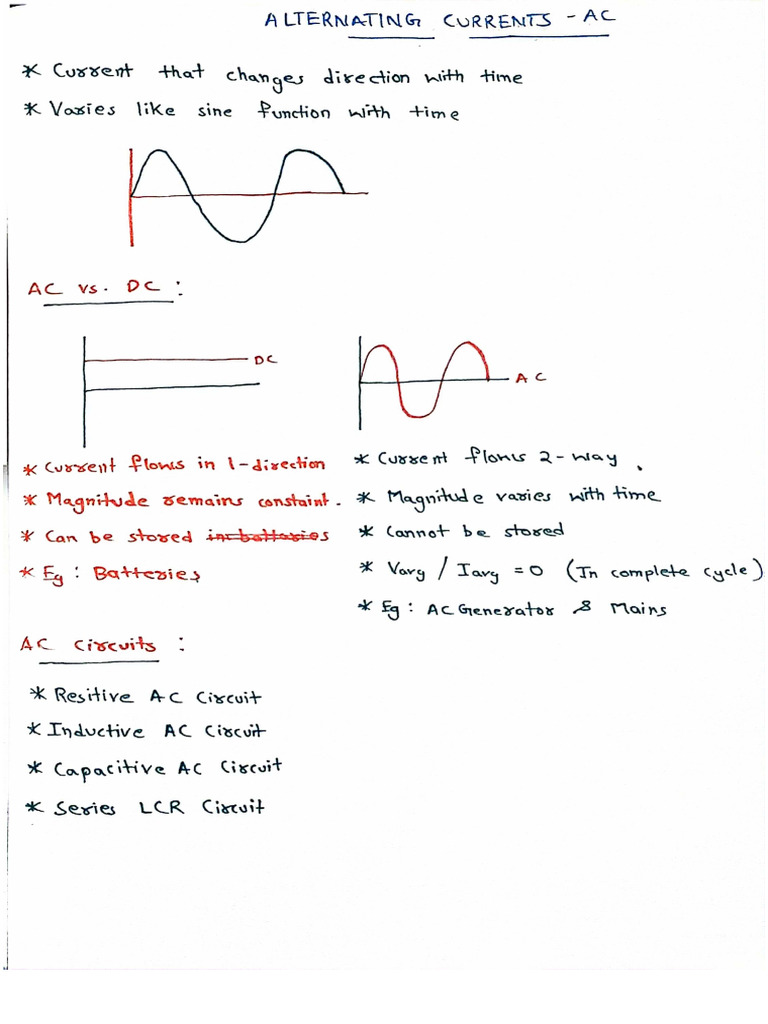 ALTERNATING CURRENTS - AC
* Current that changes direction with time
* Varies like sine function with time
AC vs. DC :
DC
AC
* Current flows in 1-direction
* Magnitude remains constaint.
* Can be stored in batteries
* Eg : Batteries
* Current flows 2-way .
* Magnitude varies with time
* Cannot be stored
* Vavg / Iavg = 0 (In complete cycle)
* Eg : AC Generator & Mains
AC Circuits :
* Resitive AC Circuit
* Inductive AC Circuit
* Capacitive AC Circuit
* Series LCR Circuit